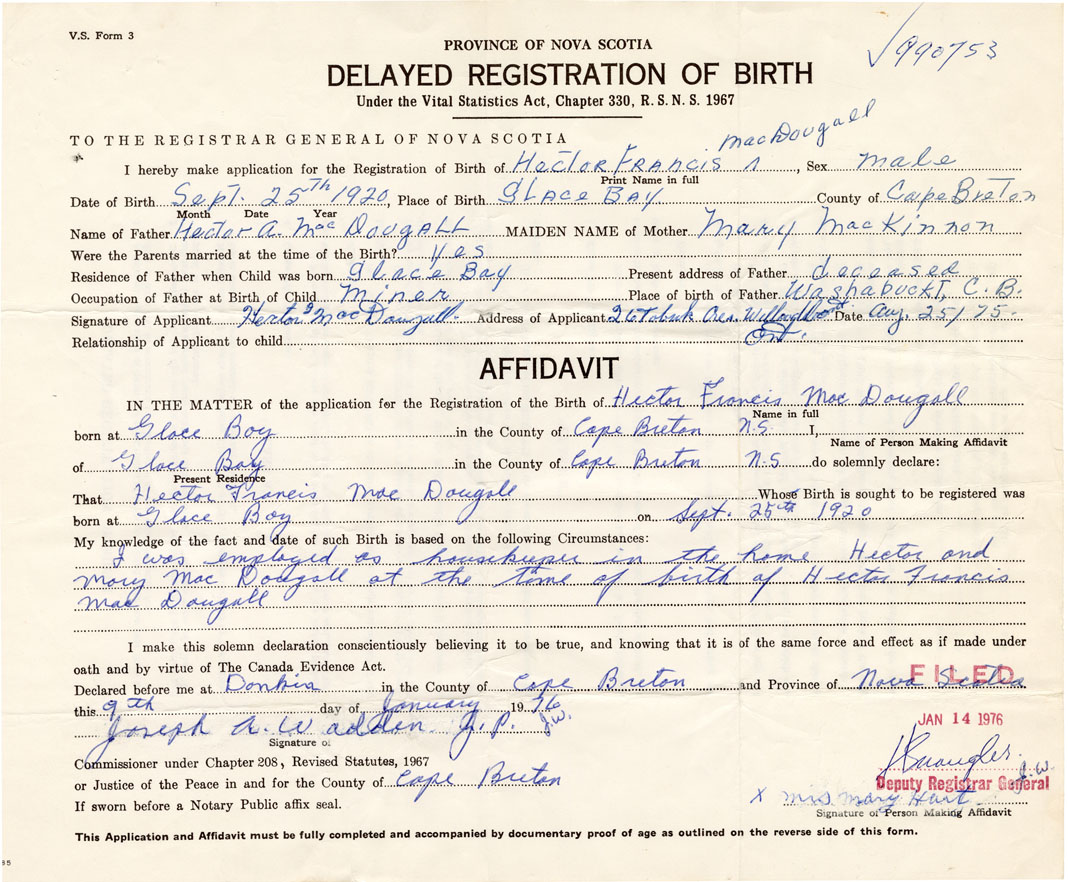 V.S. Form 3
990753
PROVINCE OF NOVA SCOTIA
DELAYED REGISTRATION OF BIRTH
Under the Vital Statistics Act, Chapter 330, R.S.N.S. 1967
TO THE REGISTRAR GENERAL OF NOVA SCOTIA
MacDougall
I hereby make application for the Registration of Birth of Hector Francis ʌ, Sex male
Print Name in full
Date of Birth Sept. 25th 1920, Place of Birth Glace Bay County of Cape Breton
Month Date Year
Name of Father Hector A. MacDougall MAIDEN NAME of Mother Mary MacKinnon
Were the Parents married at the time of the Birth? Yes
Residence of Father when Child was born Glace Bay Present address of Father deceased
Occupation of Father at Birth of Child Miner Place of birth of Father Washabuckt, C.B.
Signature of Applicant Hector MacDougall Address of Applicant 26 Cres. Date Aug. 25/75
Ont.
Relationship of Applicant to child
AFFIDAVIT
IN THE MATTER of the application for the Registration of the Birth of Hector Francis Mac Dougall
Name in full
born at Glace Bay in the County of Cape Breton N.S. I,
Name of Person Making Affidavit
of Glace Bay in the County of Cape Breton N-S do solemnly declare:
Present Residence
That Hector Francis Mac Dougall Whose Birth is sought to be registered was
born at Glace Bay on Sept. 25th 1920
My knowledge of the fact and date of such Birth is based on the following Circumstances:
I was employed as housekeeper in the home Hector and
Mary Mac Dougall at the time of birth of Hector Francis
Mac Dougall
I make this solemn declaration conscientiously believing it to be true, and knowing that it is of the same force and effect as if made under
oath and by virtue of The Canada Evidence Act.
Declared before me at Donkin in the County of Cape Breton and Province of Nova Scotia
FILED
this 9th day of January 1976
JAN 14 1976
Joseph A. Wadden J.P. J.W.
Signature of
Commissioner under Chapter 208, Revised Statutes, 1967
or Justice of the Peace in and for the County of Cape Breton
J.W.
Deputy Registrar General
If sworn before a Notary Public affix seal.
x Mrs Mary Hart
Signature of Person Making Affidavit
This Application and Affidavit must be fully completed and accompanied by documentary proof of age as outlined on the reverse side of this form.
85